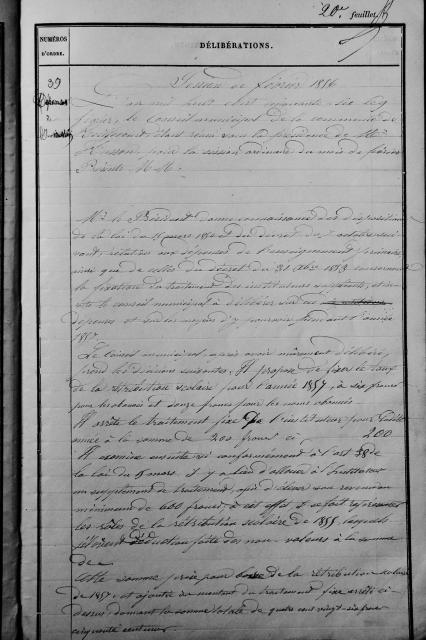 20e feuillet
NUMÉROS
D'ORDRE.
DÉLIBÉRATIONS.
39
Session de février 1856
L'an mil huit cent cinquante six le
février, le Conseil municipal de la commune de
réuni sous la présidence de Mr
pour la session ordinaire du mois de février
Présents M.M.
Mr le Président donne connaissance des dispositions
de la loi du 15 mars 1850 et du décret du 7 octobre sui
vant, relatives aux dépenses de l'enseignement primaire
ainsi que de celles du décret du 31 Xbre 1853 concernant
la fixation du traitement des instituteurs et in
vite le conseil municipal à délibérer sur ces
dépenses et sur les moyens d'y pourvoir pendant l'année
1857.
Le Conseil municipal, après avoir mûrement délibéré,
prend les décisions suivantes: Il propose de fixer le taux
de la rétribution scolaire pour l'année 1857, à six francs
pour les abonnés et douze francs pour les non abonnés.
Il arrête le traitement fixe de l'instituteur pour ladite
année à la somme de 200 francs ci, 200
Il examine ensuite si conformément à l'art 38 de
la loi du 15 mars il y a lieu d'allouer à l'instituteur
un supplément de traitement, afin d'élever son revenu au
minimum de 600 francs, à cet effet il se fait représenter
les rôles de la rétribution scolaire de 1855, lesquels
s'élèvent déduction faite des non-valeurs à la somme
de
Cette somme prise pour base de la rétribution scolaire
de 1857 et ajoutée au montant du traitement fixe arrêté ci-
dessus donnant la somme totale de quatre cent vingt-six francs
cinquante centimes.